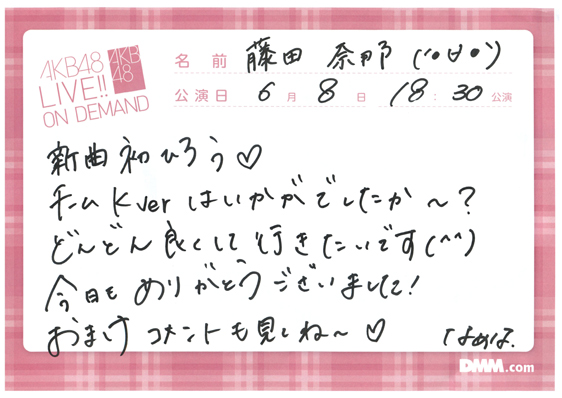 AKB48
LIVE!!
ON DEMAND
AKB
48
名前 藤田 奈那 ('•∀•')
公演日 6月8日 18:30公演
新曲初ひろう♡
チームKverはいかがでしたか〜？
どんどん良くして行きたいです(^^)
今日もありがとうございました！
おまけコメントも見てね〜♡
DMM.com